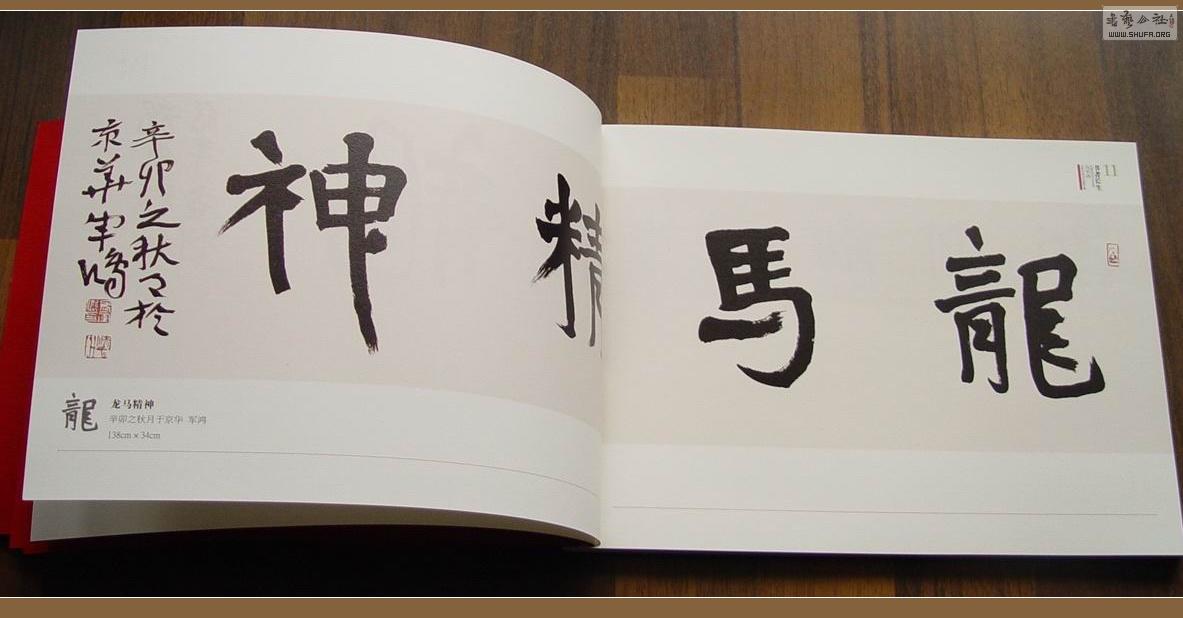 龍馬精神
辛卯之秋月於
京華軍鴻
龙马精神
辛卯之秋月于京华 军鸿
138cm × 34cm
11
WWW.SHUFA.ORG